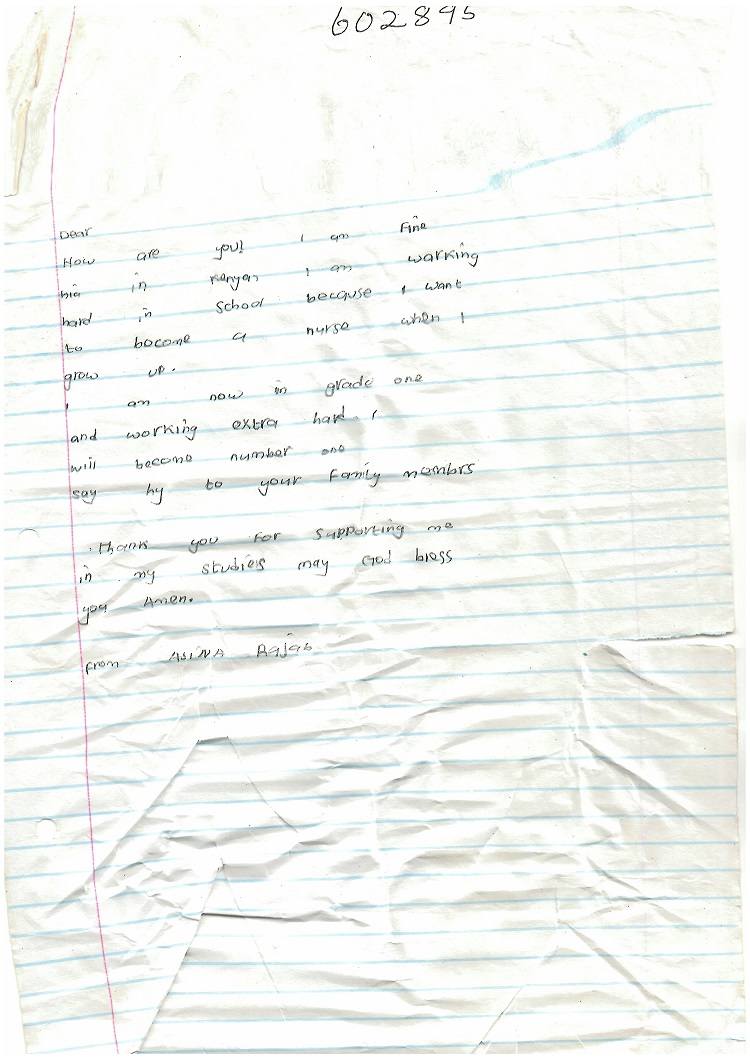 602895
Dear
How are you? I am Fine
hia in Kenyan I am warking
hard in School because I want
to bocome a nurse when I
grow up.
I am now in grade one
and working extra hard. I
will become number one
say hy to your Family membrs
. Thank you For supporting me
in my studieis may God bless
you Amen.
From ASINA Rajab